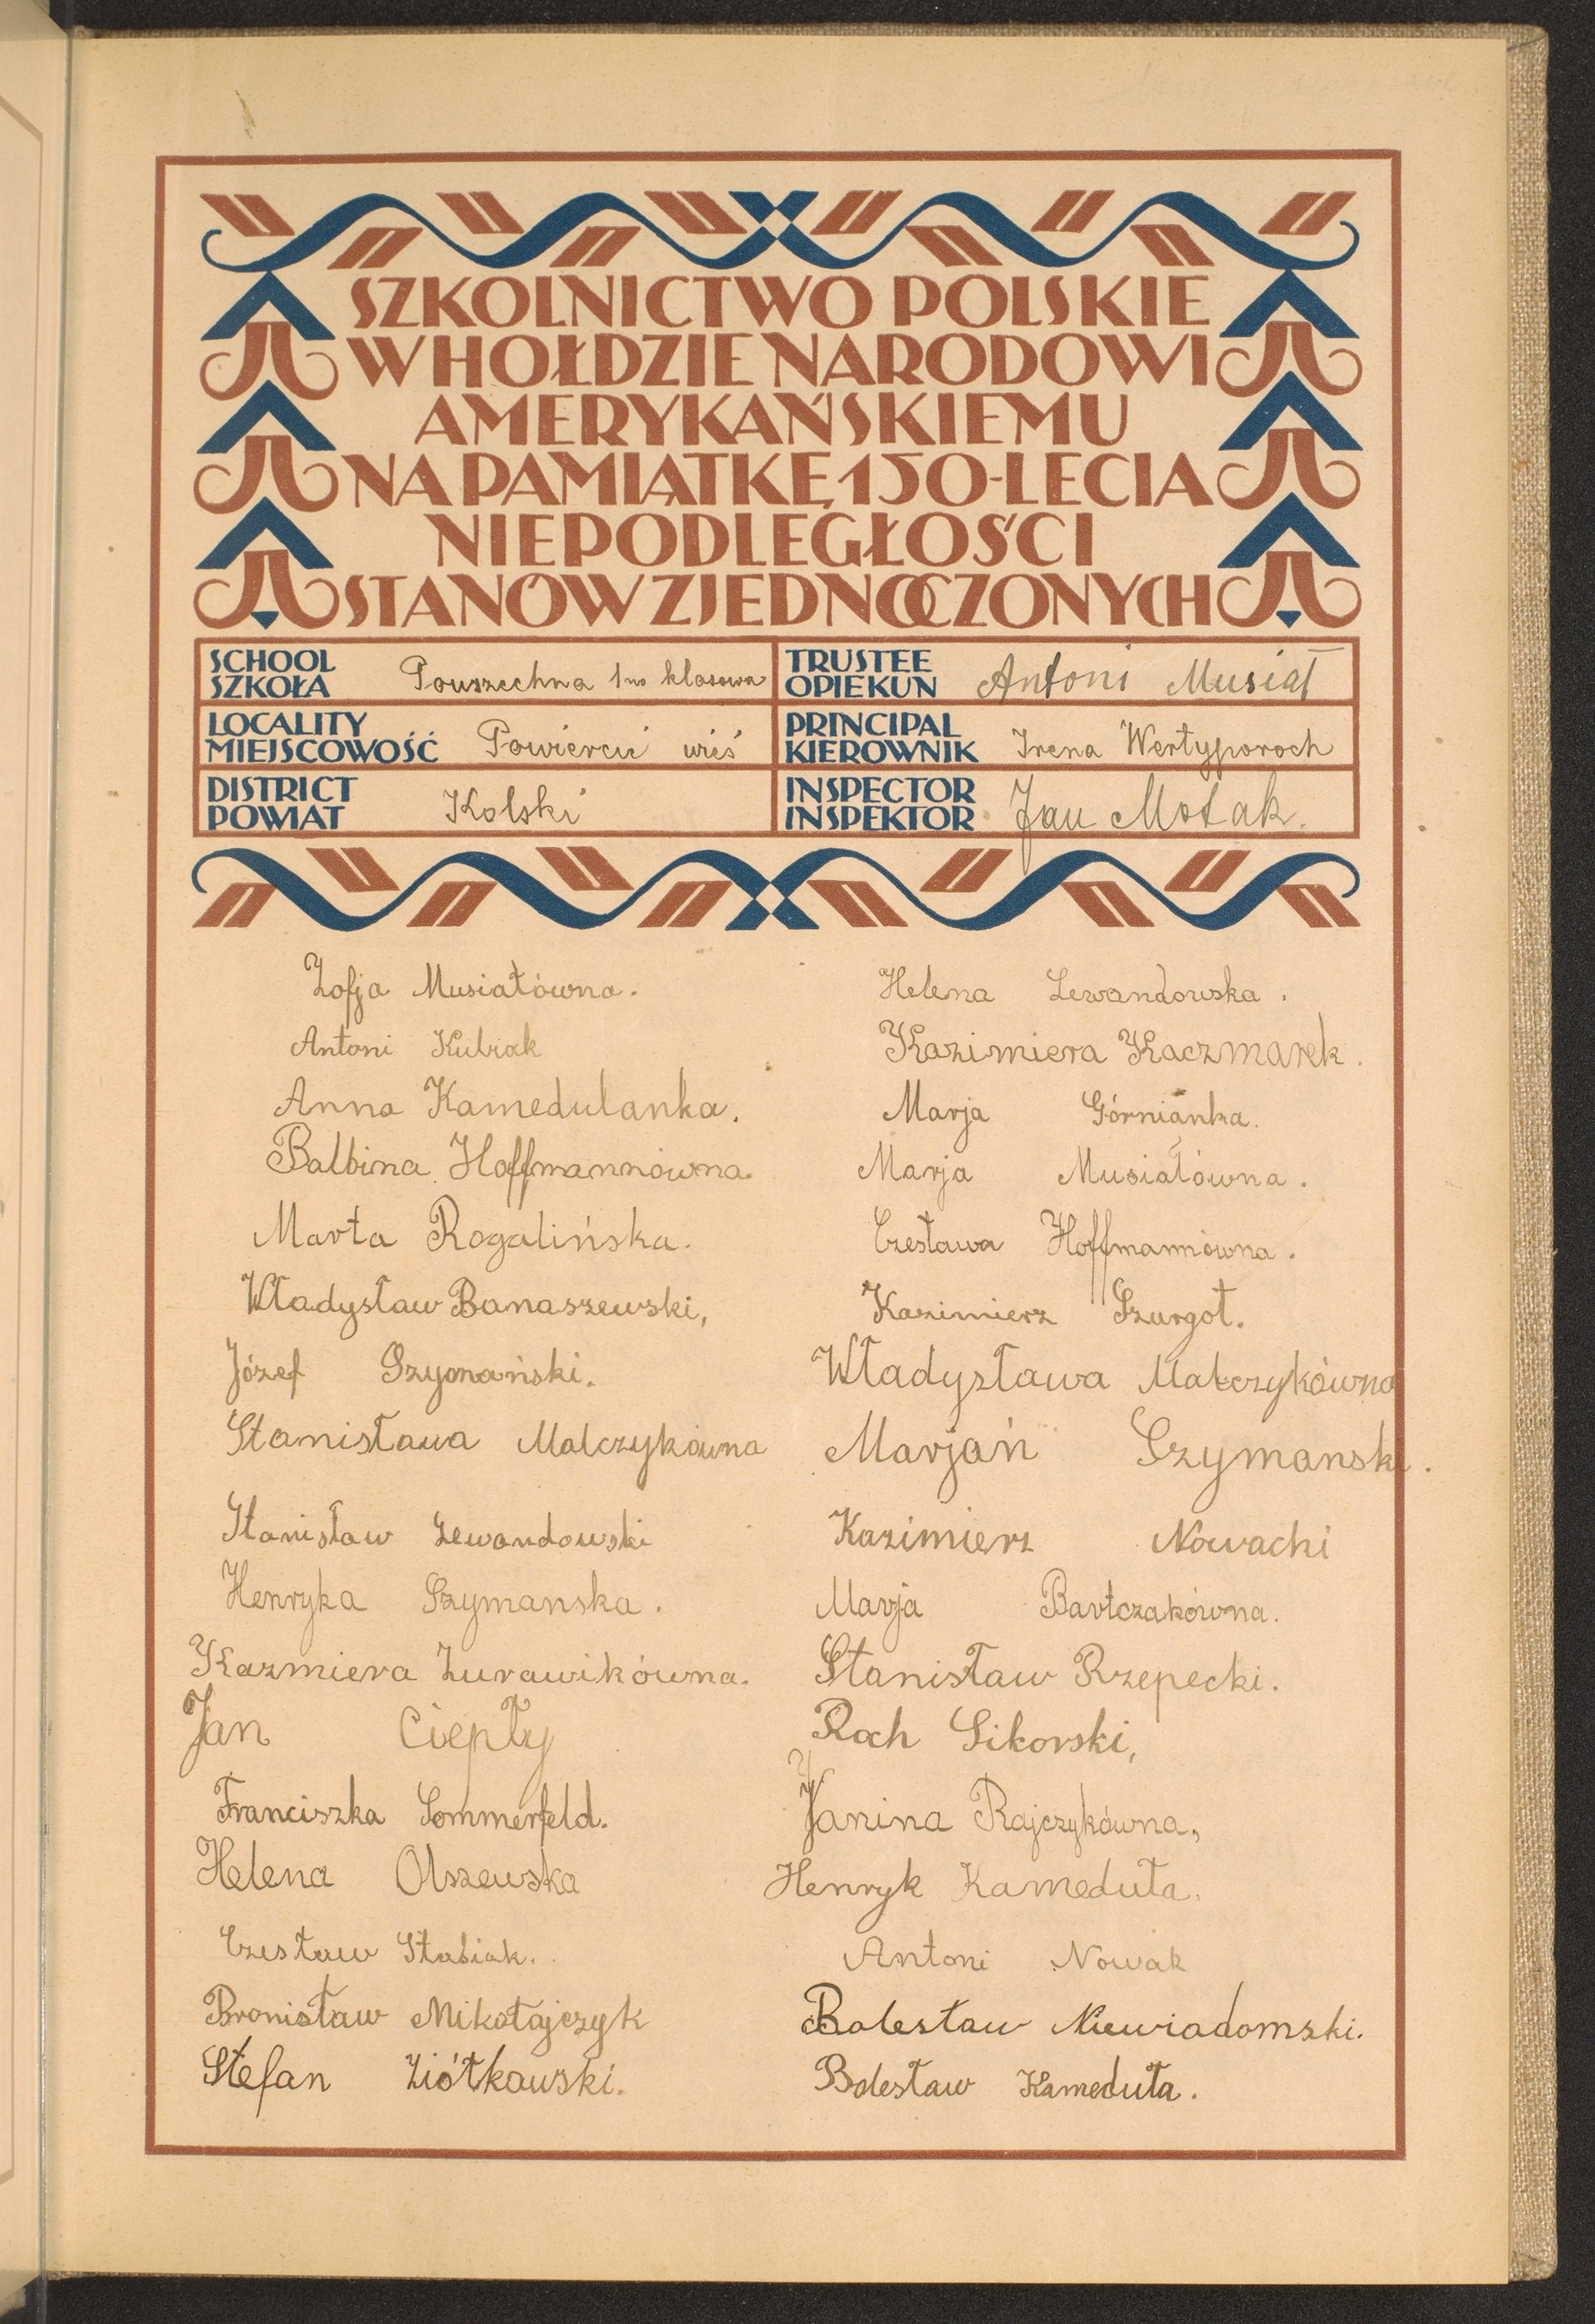 SZKOLNICTWO POLSKIE
W HOŁDZIE NARODOWI
AMERYKAŃSKIEMU
NA PAMIĄTKĘ 150-LECIA
NIEPODLEGŁOŚCI
STANÓW ZJEDNOCZONYCH
SCHOOL
SZKOŁA
Powszechna 1no klasowa
TRUSTEE
OPIEKUN
Antoni Musiał
LOCALITY
MIEJSCOWOŚĆ
Powiercie wieś
PRINCIPAL
KIEROWNIK
Irena Wertyporoch
DISTRICT
POWIAT
Kolski
INSPECTOR
INSPEKTOR
Jan Motak.
Zofja Musiałówna.
Antoni Kubiak
Anna Kamedulanka.
Balbina Hoffmannówna.
Marta Rogalińska.
Władysław Banaszewski,
Józef Szymański.
Stanisława Malczykówna
Stanisław Lewandowski
Henryka Szymanska.
Kazmiera Żurawikówna.
Jan Ciepły
Franciszka Sommerfeld.
Helena Olszewska
Czesław Stasiak.
Bronisław Mikołajczyk
Stefan Ziółkowski.
Helena Lewandowska.
Kazimiera Kaczmarek.
Marja Górnianka.
Marja Musiałówna.
Czesława Hoffmannówna.
Kazimierz Szurgot.
Władysława Malczykówna
Marjań Szymanski.
Kazimierz Nowacki
Marja Bartczakówna.
Stanisław Rzepecki.
Roch Sikorski,
Janina Rajczykówna,
Henryk Kameduła.
Antoni Nowak
Bolesław Niewiadomski.
Bolesław Kameduła.